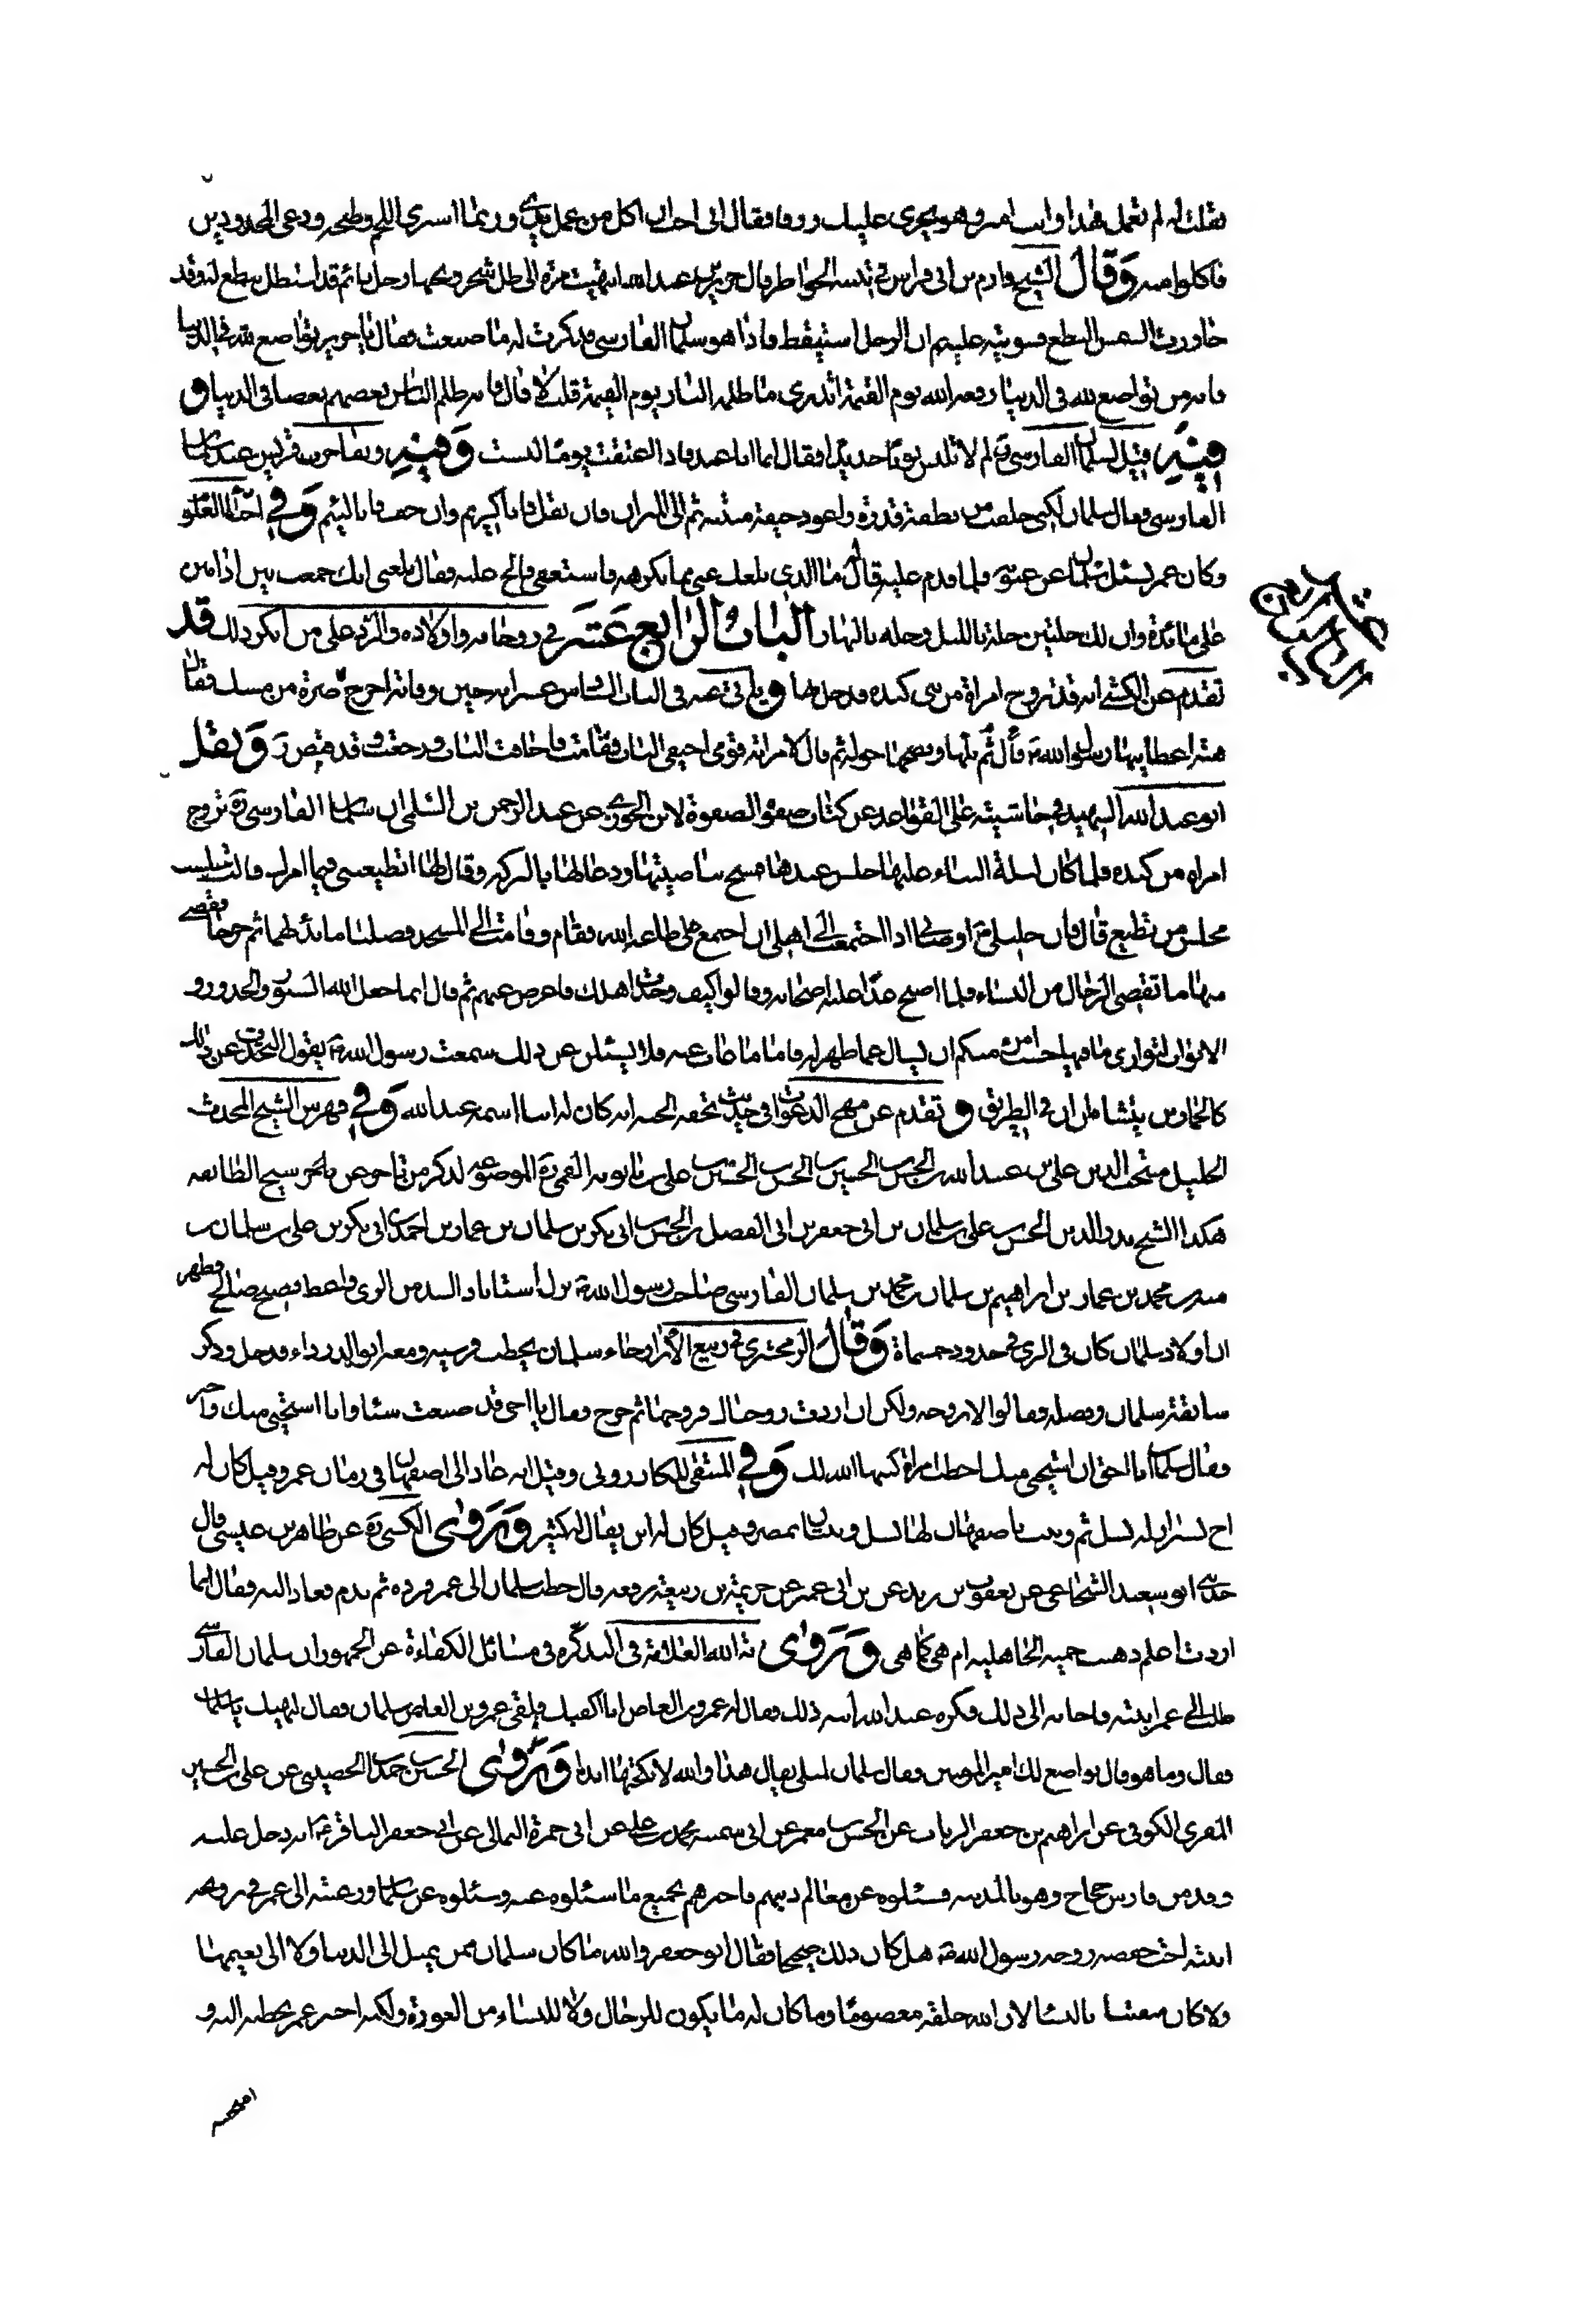 فقلت له لم تعمل هذا وانت امير وهو يجرى عليك رزقا فقال انى احب ان اكل من عمل يدى وربما اشترى اللحم وطبخه ودعى المجذومين
فاكلوا معه وَقالَ الشيخ ورام بن ابى فراس فى تنبيه الخواطر قال جرير بن عبد الله انتهيت مرة الى ظل شجرة وتحتها رجل نائم قد استظل بنطع له وقد
جاوزت الشمس النطع فسويته عليه ثم ان الرجل استيقظ فاذا هو سلمان الفارسى فذكرت له ما صنعت فقال يا جرير تواضع لله فى الدنيا
فانه من تواضع لله فى الدنيا رفعه الله يوم القيمة اتدرى ما ظلمة النار يوم القيمة قلت لا قال فانه ظلم الناس بعضهم بعضا فى الدنيا و
فيهِ قيل لسلمان الفارسى ره لم لا تلبس ثوبا جديدا فقال انما انا عبد فاذا اعتقت يوما لبست وَفيهِ وتفاخرت قريش عند سلمان
الفارسى فقال سلمان لكنى خلقت من نطفة قذرة واعود جيفة منتنة ثم الى الميزان فان ثقل فانا كريم وان خف فانا لئيم وَفى احياء العلو
وكان عمر يسئل سلمان عن عيوبه فلما قدم عليه قال له ما الذى بلغك عنى مما تكرهه فاستعفى فالح عليه فقال بلغنى انك جمعت بين ادامين
على مائدة وان لك حلتين حلة بالليل وحلة بالنهار البابُ الرابع عَشَر فى زوجاته واولاده والرد على من انكر ذلك قد
تقدم عن الكشى انه قد تزوج امراة من بنى كندة فدخل بها و ياتى عنه فى الباب السادس عشر انه حين وفاته اخرج صرة من مسك فقال
هبة اعطانيها رسول الله ص قال ثم بلها ونضحها حوله ثم قال لامراته قومى اجيفى الباب فقامت فاجافت الباب فرجعت وقد قبض ره وَنقل
ابو عبد الله الشهيد فى حاشيته على القواعد عن كتاب صفو الصفوة لابن الجوزى عن عبد الرحمن بن السلمى ان سلمان الفارسى ره تزوج
امراة من كندة فلما كان ليلة البناء عليها جلس عندها فمسح بناصيتها ودعا لها بالبركة وقال لها اتطيعينى فيما امرك قالت جلست
مجلس من تطيع قال فان خليلى ص اوصانى اذا اجتمعت الى اهلى ان اجتمع على طاعة الله فقام وقامت الى المسجد فصليا ما بدا لهما ثم خرجا فقضى
منها ما تقضى الرجال من النساء فلما اصبح غدا عليه اصحابه وقالوا كيف وجدت اهلك فاعرض عنهم ثم قال انما جعل الله الستور والخدور و
الابواب لتوارى ما فيها حسب امرء منكم ان يسال عما ظهر له فاما ما غاب عنه فلا يسئلن عن ذلك سمعت رسول الله ص يقول المتحدث عن ذلك
كالحمارين يتشامان فى الطريق و تقدم عن مهج الدعوات فى حديث تحفة الجنة انه كان له ابنا اسمه عبد الله وَفى فهرس الشيخ المحدث
الجليل منتجب الدين على بن عبيد الله بن الحسن بن الحسين بن الحسن بن الحسين بن على بن بابويه القمى ره الموضوعة لذكر من تاخر عن شيخ الطائفة
هكذا الشيخ بدر الدين الحسن بن على بن سلمان بن ابى جعفر بن ابى الفضل بن الحسن بن ابى بكر بن سلمان بن عمار بن احمد بن ابى بكر بن على بن سلمان بن
منبه بن محمد بن عمار بن ابراهيم بن سلمان بن محمد بن سلمان الفارسى صاحب رسول الله ص نزل استاباد السد من الرى واعظ فصيح صالح فظهر
ان اولاد سلمان كان فى الرى فى حدود خمسماة وَقالَ الزمخشرى فى ربيع الابرار وجاء سلمان يخطب قرشية ومعه ابو الدرداء فدخل وذكر
سابقة سلمان وفضله فقالوا لا نزوجه ولكن ان اردت زوجناك فزوجها ثم خرج فقال يا اخى قد صنعت شيئا وانا استحيى منك فاخبره
فقال سلمان انا احق ان استحيى منك اخطب امراة كتبها الله لك وَفى المنتقى للكازرونى وقيل انه عاد الى اصفهان فى زمان عمر وقيل كان له
اخ بشيراز له نسل ثم وبنت باصفهان لها نسل وبنتان بمصر وقيل كان له ابن يقال له كثير وَرَوٰى الكشى ره عن طاهر بن عيسى قال
حدثنى ابو سعيد الشجاعى عن يعقوب بن يزيد عن ابن ابى عمير عن خزيمة بن ربيعة يرفعه قال خطب سلمان الى عمر فرده ثم ندم فعاد اليه فقال انما
اردت اعلم ذهبت حمية الجاهلية ام هى كما هى وَرَوٰى اية الله العلامة فى التذكرة فى مسائل الكفاءة عن الجمهور ان سلمان الفارسى
طلب الى عمر ابنته فاجابه الى ذلك فكره عبد الله ابنه ذلك فقال له عمرو بن العاص انا اكفيك فلقى عمرو بن العاص سلمان فقال ليهنيك يا سلمان
فقال وما هو قال تواضع لك امير المؤمنين فقال سلمان لمثلى يقال هذا والله لا نكحتها ابدا وَرَوٰى الحسين بن حمدان الحضينى عن على بن الحسين
المقرى الكوفى عن ابراهيم بن جعفر الزيات عن الحسن بن معمر عن ابى سمينة محمد بن على عن ابى حمزة الثمالى عن ابى جعفر الباقر ع انه دخل عليه
وفد من فارس حجاج وهو بالمدينة فسئلوه عن معالم دينهم فاخبرهم بجميع ما سئلوه عنه وسئلوه عن سلمان ورغبته الى عمر فى تزويجه
ابنته اخت حفصة زوجة رسول الله ص هل كان ذلك صحيحا فقال ابو جعفر والله ما كان سلمان ممن يميل الى الدنيا ولا الى نعيمها
ولا كان مفتتنا بالنساء لان الله خلقه معصوما وما كان له ما يكون للرجال ولا للنساء من العورة ولكنه اخبر عمر بخطبة اليه و